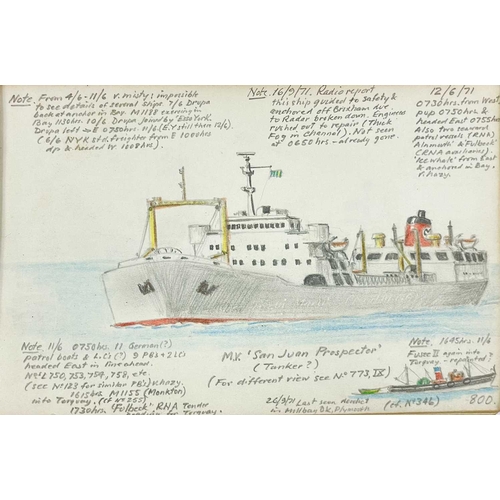 Note. From 4/6 - 11/6 v. misty; impossible
to see details of several ships. 7/6 Drupa
back at anchor in Bay. M1188 exercising in
Bay 1130hrs. 10/6 Drupa joined by 'Esso York'.
Drupa left → E 0750hrs 11/6 (E.Y. still there 12/6)
(6/6 NYK std. freighter from E 1000hrs
d/s & headed W. 1008hrs).
Note. 16/9/71. Radio report
this ship guided to safety &
anchored off Brixham due
to Radar broken down. Engineer
rushed out to repair (Thick
Fog in Channel). Not seen
at 0650hrs - already gone.
12/6/71
0730hrs. from West,
pup 0750hrs &
headed East 0755hrs
Also two seaward
patrol vessels (RNA)
'Alnmouth' & 'Fulbeck'
(RNA auxiliaries).
from East
& anchored in Bay.
v. hazy.
Note. 11/6 0750hrs. 11 German (?)
patrol boats & L.C's (?) 9 PBs + 2 LCs
headed East in line ahead.
Nos. L 750, 753, 794, 758, etc.
(see No 123 for similar PB's) v. hazy.
1615hrs M1155 (Monkton)
into Torquay. (cf No 255)
1730hrs. 'Fulbeck' RNA Tender
heading for Torquay.
M.V. 'San Juan Prospector'
(Tanker?)
(For different view see No 773, IX)
26/9/71 Last seen
in Millbay Dk, Plymouth
Note. 1645hrs. 11/6
Fusee II again into
Torquay - repainted?
(cf. No 346)
800.